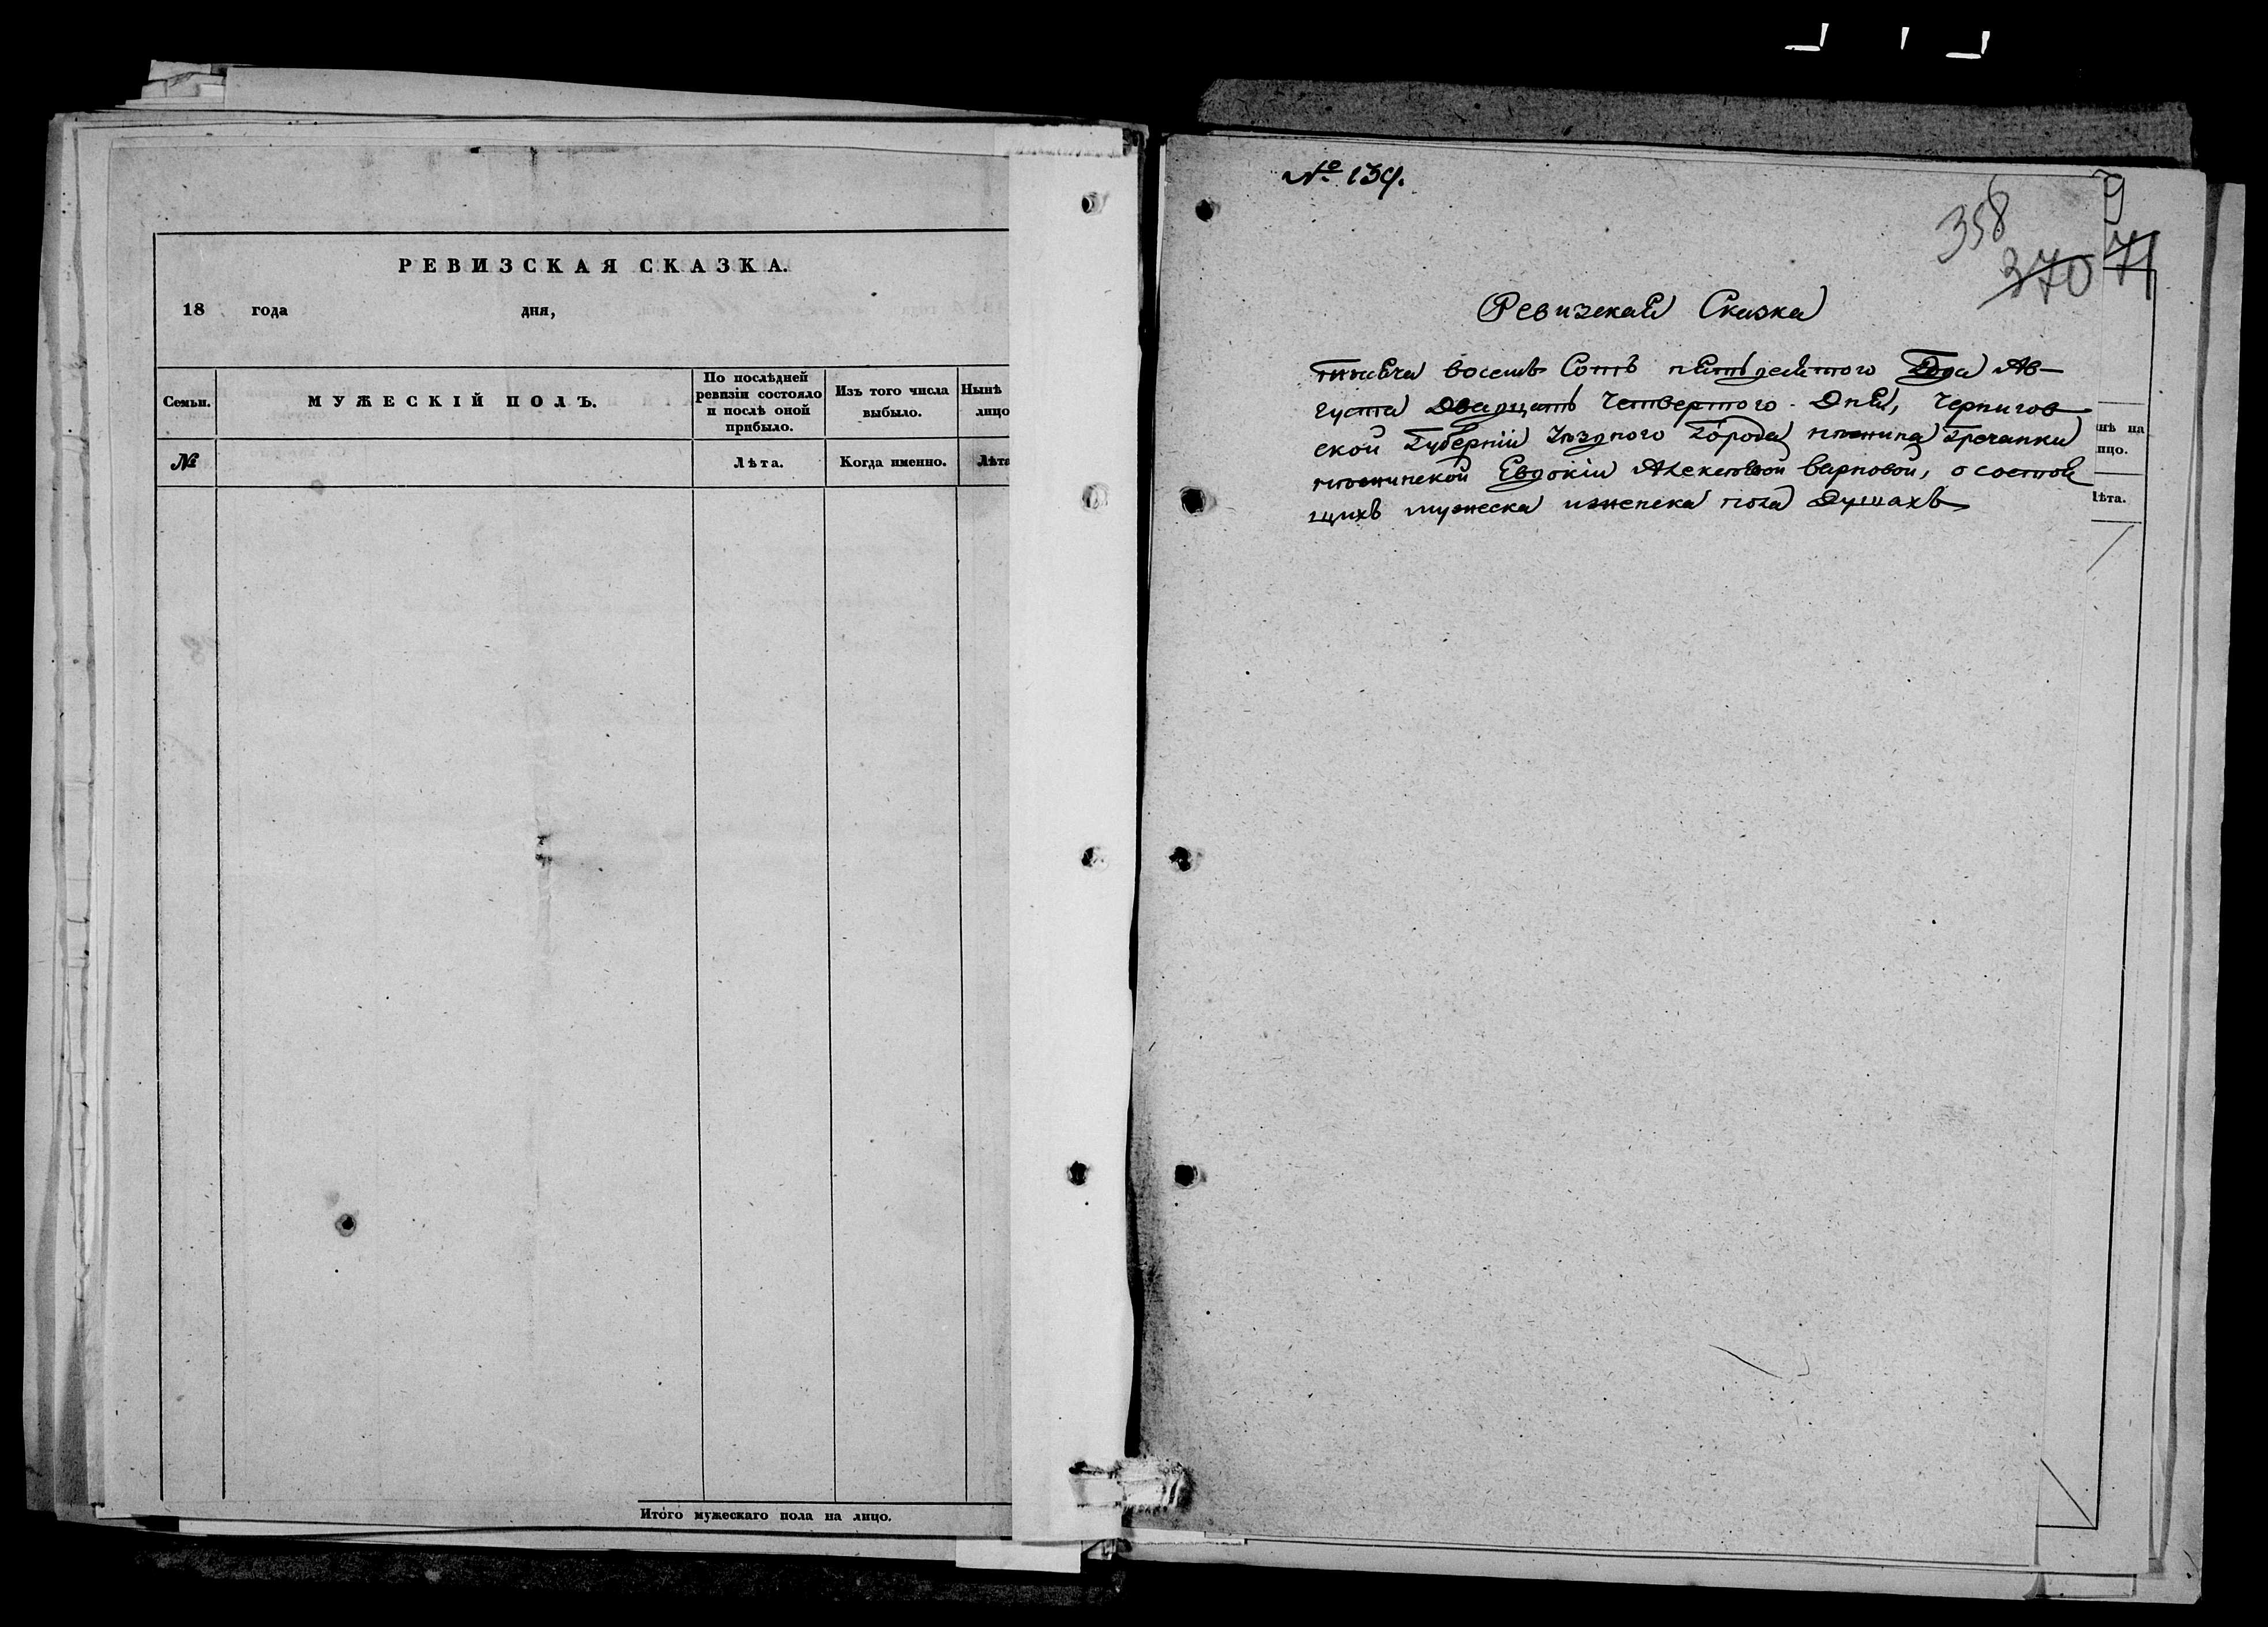 РЕВИЗСКАЯ СКАЗКА.
18 года дня,
Семьи.
МУЖЕСКІЙ ПОЛЪ.
По послѣдней
ревизіи состояло
и послѣ оной
прибыло.
Изъ того числа
выбыло.
Нынѣ
лицо
№
Лѣта.
Когда именно.
Лѣта
Итого мужескаго пола на лицо.
№ 139.
358
370
9
71
Ревизская Сказка
тысяча восемь Сотъ пятьдесятого Года Ав-
густа Двадцать Четвертого Дня, Чернигов
ской Губерніи Уѣздного Города Нѣжина Гречанки
нѣжинской Евдокіи Алексѣевой , о состоя
щихъ мужеска иженска пола Душахъ
нѣ на
ицо.
Лѣта.